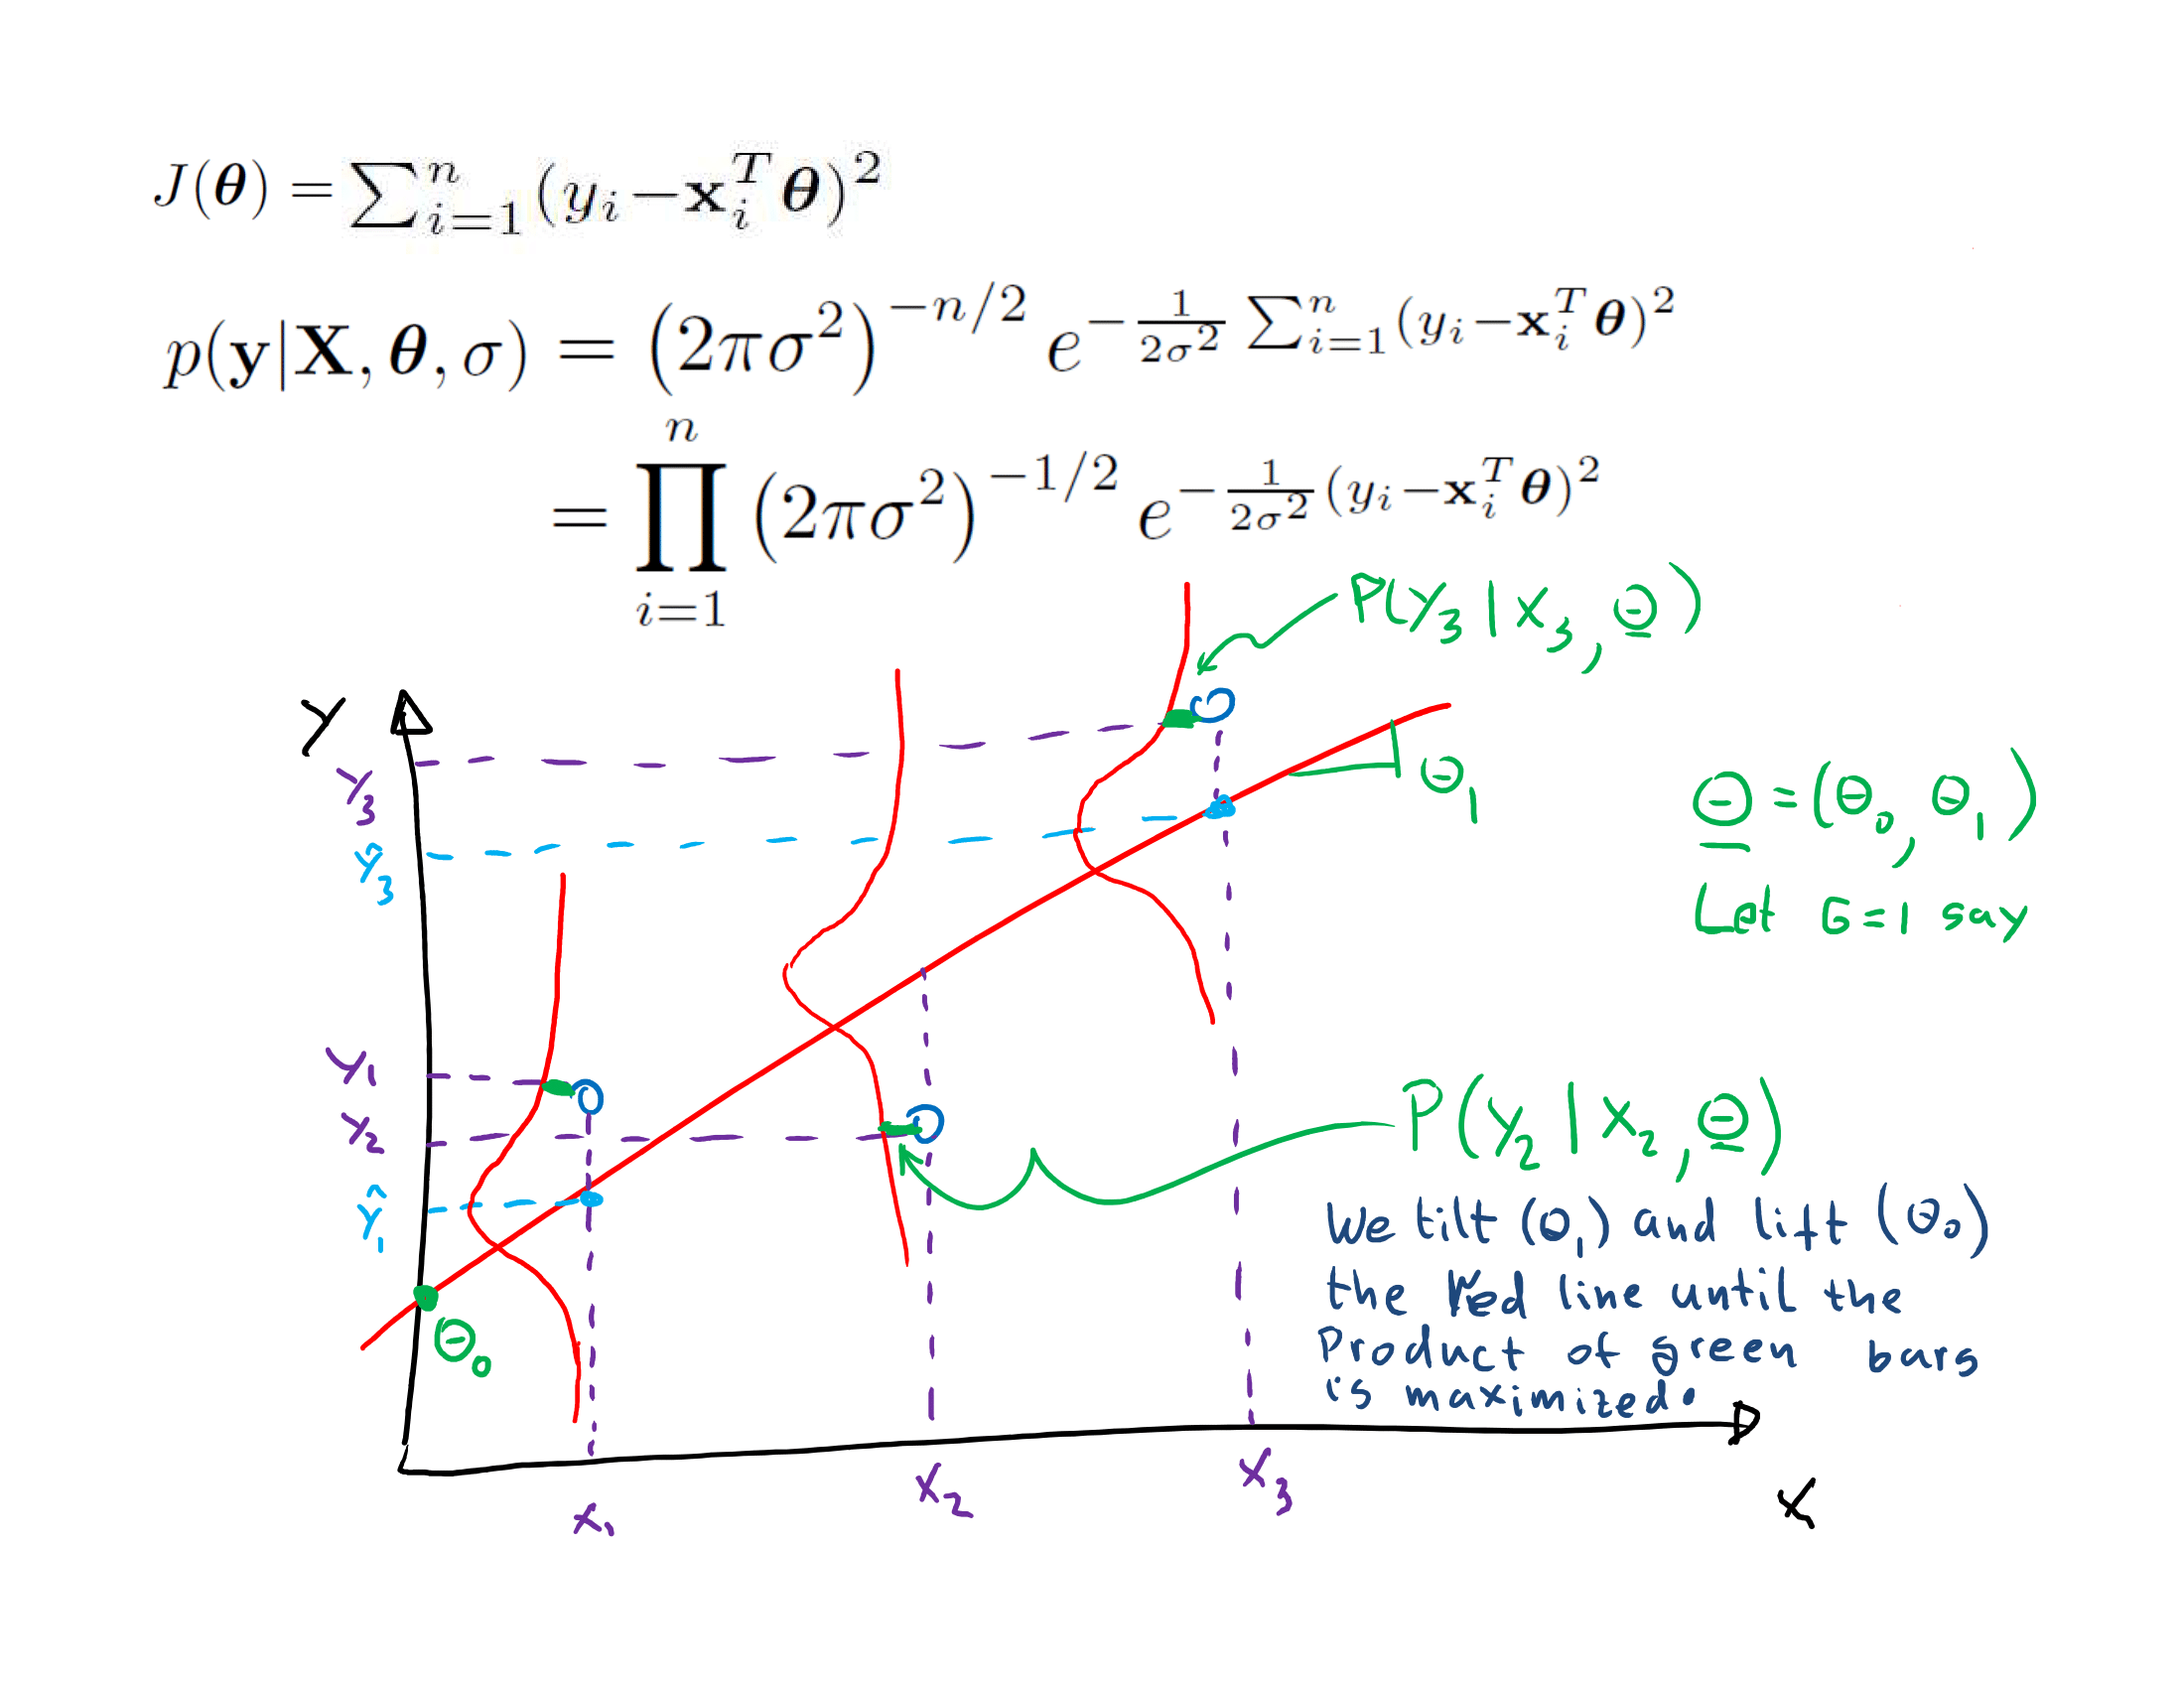 J(θ) = ∑ⁿᵢ₌₁ (yᵢ−xᵢᵀθ)²
p(y|X, θ, σ) = (2πσ²)^{−n/2} e^{−\frac{1}{2σ²} ∑ⁿᵢ₌₁ (yᵢ−xᵢᵀθ)²}
= ∏ⁿᵢ₌₁ (2πσ²)^{−1/2} e^{−\frac{1}{2σ²} (yᵢ−xᵢᵀθ)²}
P(y₃ | x₃, θ)
Y
y₃
θ₁
θ = (θ₀, θ₁)
ŷ₃
Let σ=1 say
y₁
y₂
P(y₂ | x₂, θ)
ŷ₁
We tilt (θ₁) and lift (θ₀)
the red line until the
Product of green bars
is maximized.
θ₀
x₁
x₂
x₃
X